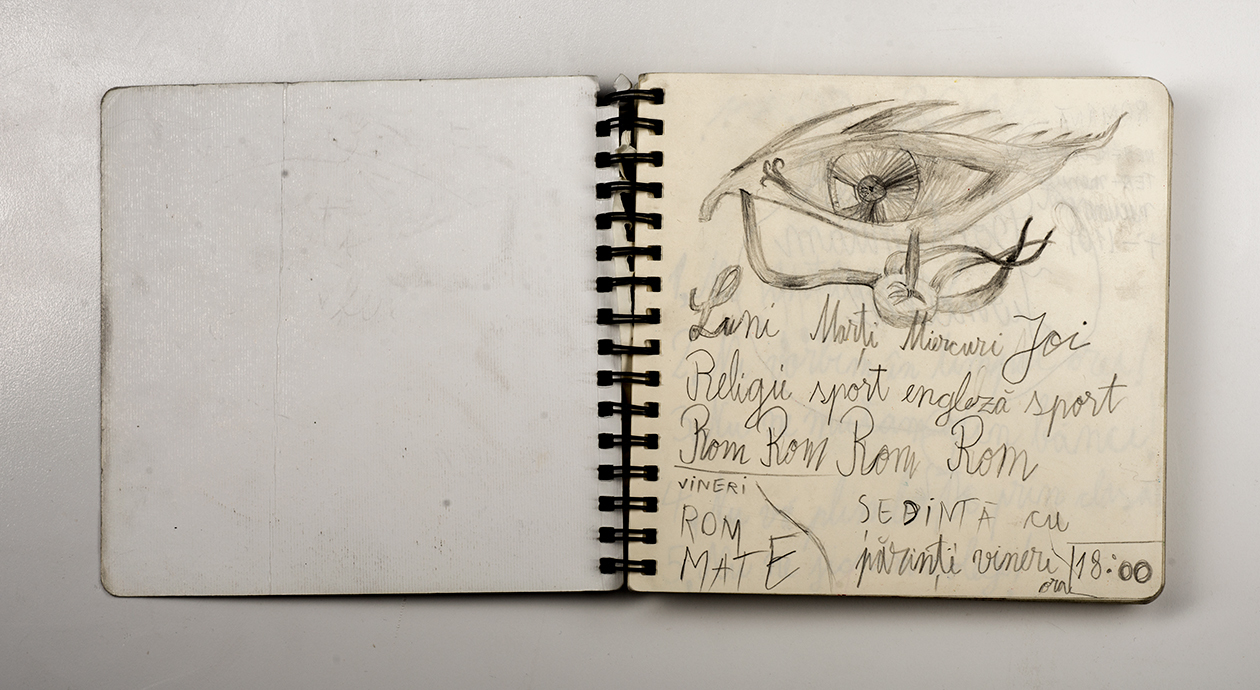 Luni Marți Miercuri Joi
Religie sport engleză sport
Rom Rom Rom Rom
VINERI
ROM
MATE
SEDINTĂ cu
părinți vineri
ora 18:00